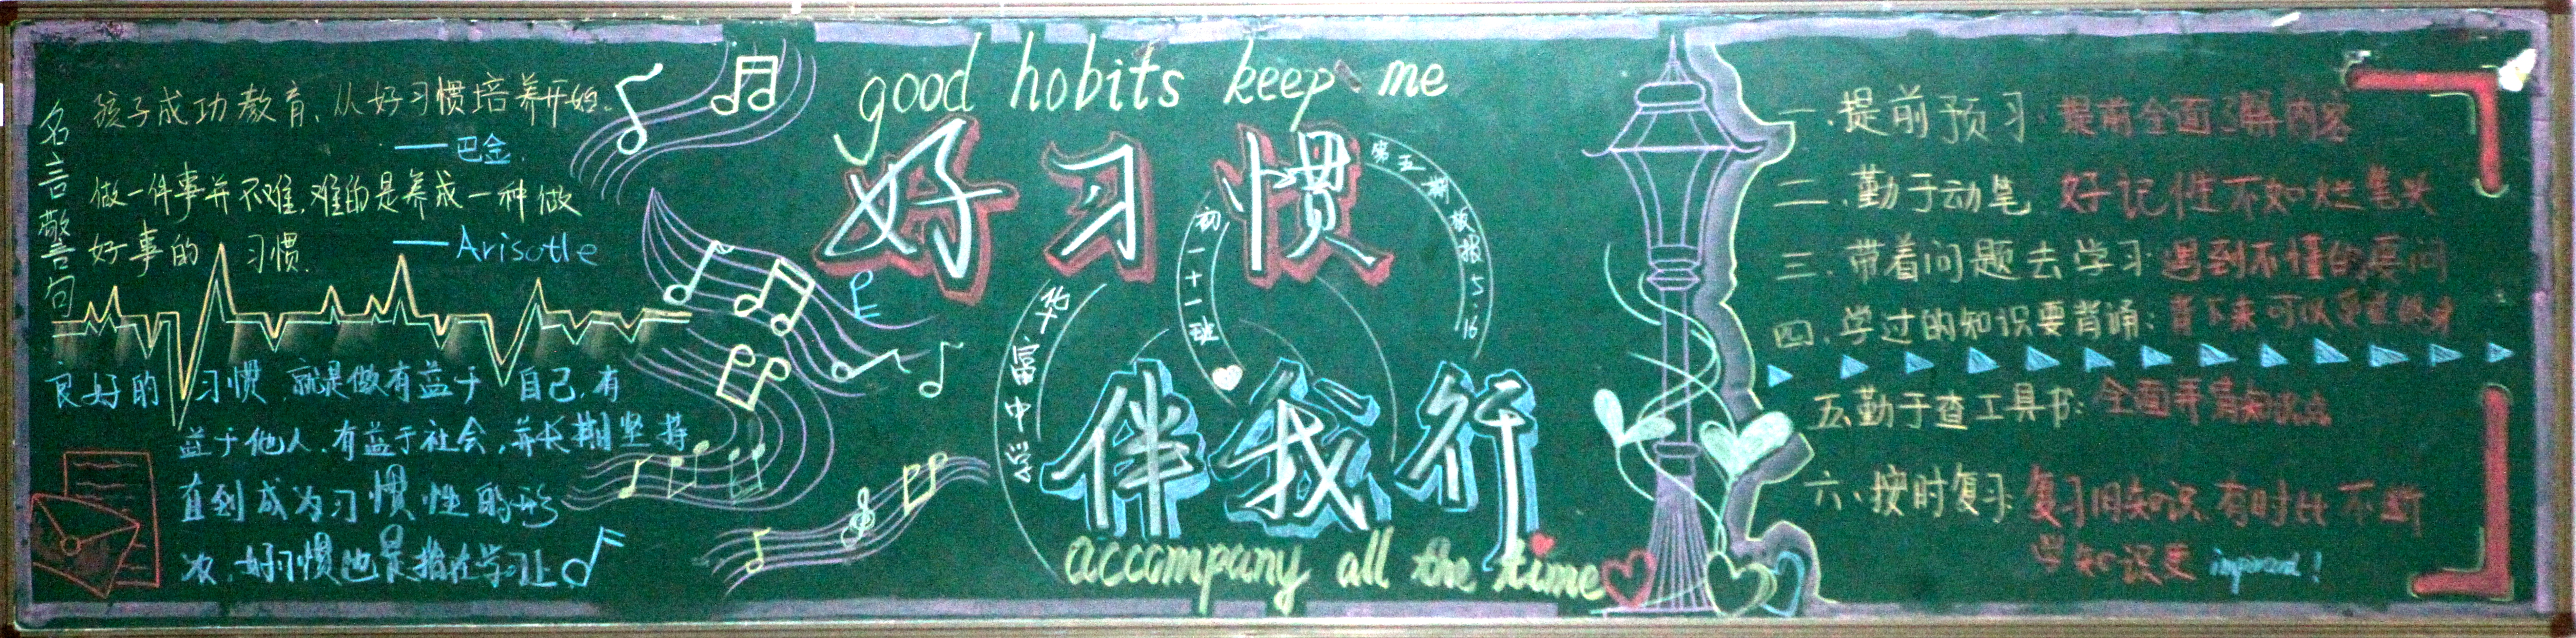 名言警句
孩子成功教育、从好习惯培养开始.
——巴金.
做一件事并不难,难的是养成一种做
好事的 习惯.
——Arisotle
良好的 习惯 就是做有益于 自己,有
益于他人,有益于社会,并长期坚持
直到成为习惯性的形
次,好习惯也是指在学习上
good hobits keep me
好习惯
第五期板报5 16
初一十一班
华富中学
伴我行
accompany all the time
一.提前预习 提前全面了解内容
二.勤于动笔 好记性不如烂笔头
三.带着问题去学习 遇到不懂的要问
四.学过的知识要背诵: 背下来可以
五.勤于查工具书: 全面 知识点
六、按时复习 复习旧知识,有时比不断
学知识更 important!